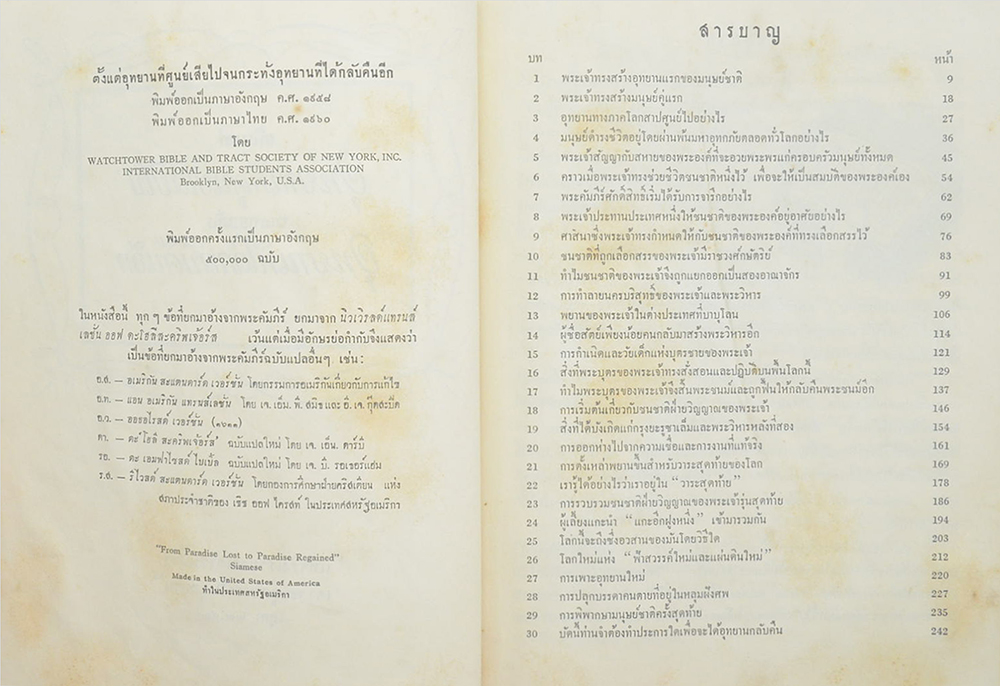 ตั้งแต่อุทยานที่ศูนย์เสียไปจนกระทั่งอุทยานที่ได้กลับคืนอีก
พิมพ์ออกเป็นภาษาอังกฤษ ค.ศ. ๑๙๕๘
พิมพ์ออกเป็นภาษาไทย ค.ศ. ๑๙๖๐
โดย
WATCHTOWER BIBLE AND TRACT SOCIETY OF NEW YORK, INC.
INTERNATIONAL BIBLE STUDENTS ASSOCIATION
Brooklyn, New York, U.S.A.
พิมพ์ออกครั้งแรกเป็นภาษาอังกฤษ
๕๐๐,๐๐๐ ฉบับ
ในหนังสือนี้ ทุก ๆ ข้อที่ยกมาอ้างจากพระคัมภีร์ ยกมาจาก นิวเวิรลด์แทรนส์
เลชัน ออฟ ตะโฮลีสะคริพเจ้อร์ส เว้นแต่เมื่อมีอักษรย่อกำกับจึงแสดงว่า
เป็นข้อที่ยกมาอ้างจากพระคัมภีร์ฉบับแปลอื่นๆ เช่น:
อ.ส. — อเมริกัน สะแตนดาร์ด เวอร์ชัน โดยกรรมการอเมริกันเกี่ยวกับการแก้ไข
อ.ท. — แอน อเมริกัน แทรนส์เลชัน โดย เจ.เอ็ม. พี. สมิธ และ อี. เจ. กู๊ดสะปีด
อ.ว. — ออธอไรสด์ เวอร์ชัน (๑๖๑๑)
ดา. — ตะ โฮลี สะคริพเจ้อร์ส ฉบับแปลใหม่ โดย เจ. เอ็น. ดาร์บี
รธ. — ตะ เอมฟาไซสด์ ไบเบิ้ล ฉบับแปลใหม่ โดย เจ. บี. รอเธอร์แฮม
ร.ส. — รีไวสด์ สะแตนดาร์ด เวอร์ชัน โดยกองการศึกษาฝ่ายคริสเตียน แห่ง
สภาประจำชาติของ เชิช ออฟ ไครสท์ ในประเทศสหรัฐอเมริกา
"From Paradise Lost to Paradise Regained"
Siamese
Made in the United States of America
ทำในประเทศสหรัฐอเมริกา
สารบาญ
บท หน้า
1 พระเจ้าทรงสร้างอุทยานแรกของมนุษย์ชาติ 9
2 พระเจ้าทรงสร้างมนุษย์คู่แรก 18
3 อุทยานทางภาคโลกสาปศูนย์ไปอย่างไร 27
4 มนุษย์ดำรงชีวิตอยู่โดยผ่านพ้นมหาอุทกภัยตลอดทั่วโลกอย่างไร 36
5 พระเจ้าสัญญากับสหายของพระองค์ที่จะอวยพระพรแก่ครอบครัวมนุษย์ทั้งหมด 45
6 คราวเมื่อพระเจ้าทรงช่วยชีวิตชนชาติหนึ่งไว้ เพื่อจะให้เป็นสมบัติของพระองค์เอง 54
7 พระคัมภีร์ศักดิ์สิทธิ์เริ่มได้รับการจารึกอย่างไร 62
8 พระเจ้าประทานประเทศหนึ่งให้ชนชาติของพระองค์อยู่อาศัยอย่างไร 69
9 ศาสนาซึ่งพระเจ้าทรงกำหนดให้กับชนชาติของพระองค์ที่ทรงเลือกสรรไว้ 76
10 ชนชาติที่ถูกเลือกสรรของพระเจ้ามีราชวงศ์กษัตริย์ 83
11 ทำไมชนชาติของพระเจ้าจึงถูกแยกออกเป็นสองอาณาจักร 91
12 การทำลายนครบริสุทธิ์ของพระเจ้าและพระวิหาร 99
13 พยานของพระเจ้าในต่างประเทศที่บาบูโลน 106
14 ผู้ซื่อสัตย์เพียงน้อยคนกลับมาสร้างพระวิหารอีก 114
15 การกำเนิดและวัยเด็กแห่งบุตรชายของพระเจ้า 121
16 สิ่งที่พระบุตรของพระเจ้าทรงสั่งสอนและปฏิบัติบนพื้นโลกนี้ 129
17 ทำไมพระบุตรของพระเจ้าจึงสิ้นพระชนม์และถูกฟื้นให้กลับคืนพระชนม์อีก 137
18 การเริ่มต้นเกี่ยวกับชนชาติฝ่ายวิญญาณของพระเจ้า 146
19 สิ่งที่ได้บังเกิดแก่กรุงยะรูซาเล็มและพระวิหารหลังที่สอง 154
20 การออกห่างไปจากความเชื่อและการงานที่แท้จริง 161
21 การตั้งเหล่าพยานขึ้นสำหรับวาระสุดท้ายของโลก 169
22 เรารู้ได้อย่างไรว่าเราอยู่ใน "วาระสุดท้าย" 178
23 การรวบรวมชนชาติฝ่ายวิญญาณของพระเจ้ารุ่นสุดท้าย 186
24 ผู้เลี้ยงแกะนำ "แกะอีกฝูงหนึ่ง" เข้ามารวมกัน 194
25 โลกนี้จะถึงซึ่งอวสานของมันโดยวิธีใด 203
26 โลกใหม่แห่ง "ฟ้าสวรรค์ใหม่และแผ่นดินใหม่" 212
27 การเพาะอุทยานใหม่ 220
28 การปลุกบรรดาคนตายที่อยู่ในหลุมฝังศพ 227
29 การพิพากษามนุษย์ชาติครั้งสุดท้าย 235
30 บัดนี้ท่านจำต้องทำประการใดเพื่อจะได้อุทยานกลับคืน 242